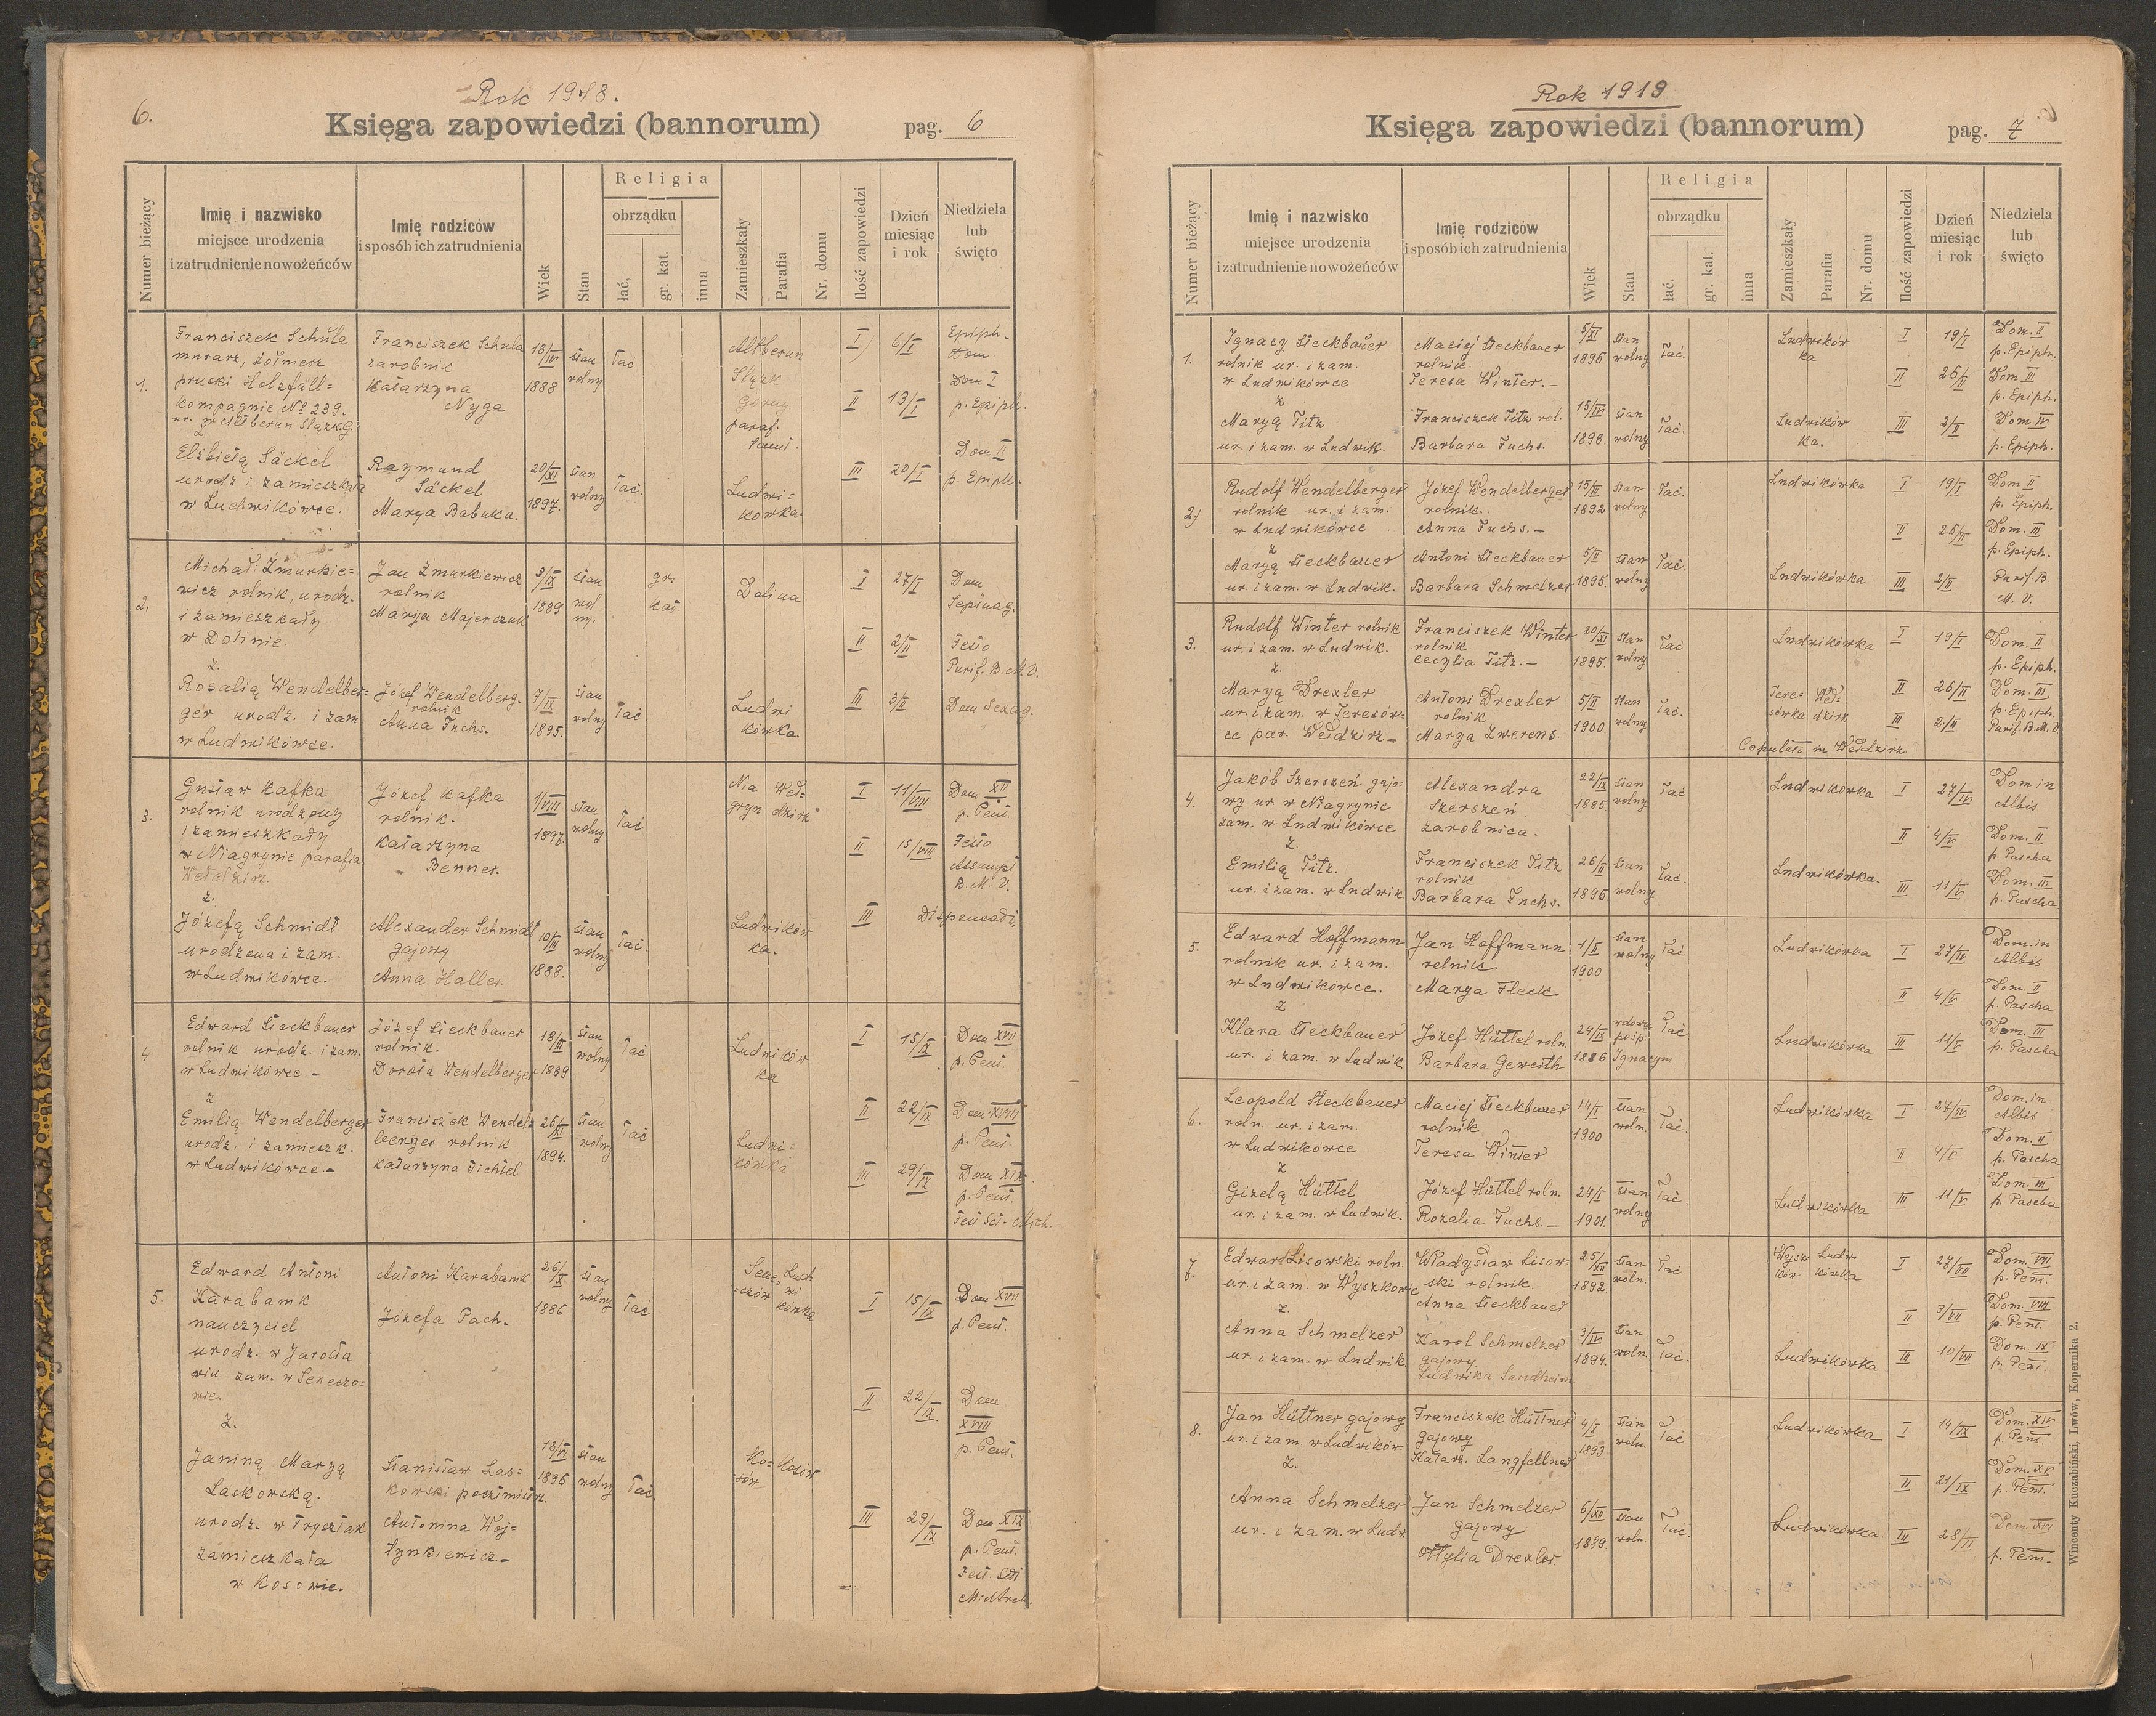 6.
Rok 1918.
Księga zapowiedzi (bannorum)
pag. 6
Numer bieżący
Imię i nazwisko
miejsce urodzenia
i zatrudnienie nowożeńców
Imię rodziców
i sposób ich zatrudnienia
Wiek
Stan
Religia
obrządku
łać,
gr. kat.
inna
Zamieszkały
Parafia
Nr. domu
Ilość zapowiedzi
Dzień
miesiąc
i rok
Niedziela
lub
święto
1.
Franciszek Schula
murarz, żołnierz
pruski Holzfäll=
Kompagnie № 239.
ur. w Altberun Slązk G.
z
Elżbietą Säckel
urodz i zamieszkała
w Ludwikówce.
Franciszek Schula
zarobnic
Katarzyna
Nyga
Raymund
Säckel
Marya Babuka.
1888
stan
wolny
łać
20/XI
1897.
stan
wolny
łać.
Altberun
Slązk
Górny.
paraf.
Ludwi=
kówka.
I
6/I
Epiph.
Dom.
II
13/I
Dom I
p. Epiph.
III
20/I
Dom II
p. Epiph.
2.
Michał Żmurkie=
wicz rolnik, urodz.
i zamieszkały
w Dolinie.
z.
Rozalią Wendelber=
ger urodz. i zam
w Ludwikówce.
Jan Żmurkiewicz
rolnik
Marya Majerczuk
Józef Wendelberg.
rolnik
Anna Fuchs.
3/IX
1889
stan
wol
ny.
gr.
kat.
7/IX
1895.
stan
wolny
łać
Dolina
Ludwi
kówka.
I
27/I
Dom
Septuag.
II
2/II
Festo
Purif. B. M. V.
III
3/II
Dom Sexag.
3.
Gustaw Kafka
rolnik urodzony
i zamieszkały
w Niagrynie parafia
Wełdzirz.
z.
Józefą Schmidt
urodzona i zam.
w Ludwikówce.
Józef Kafka
rolnik.
Katarzyna
Benner.
Alexander Schmidt
gajowy
Anna Haller
1/VIII
1897.
stan
wolny
łać
10/III
1888.
stan
wolny
łać.
Nia Weł=
gryn dzirz
Ludwików
ka.
I
11/VIII
Dom XII
p. Pent.
II
15/VIII
Festo
Assumpt
B. M. V.
III
Dispensati.
4
Edward Steckbauer
rolnik urodz. i zam.
w Ludwikówce. -
z
Emilią Wendelberger
urodz. i zamieszk.
w Ludwikówce. -
Józef Steckbauer
rolnik.
Dorota Wendelberger
Franciszek Wendel=
berger rolnik
Katarzyna Tichtel
18/III
1889
stan
wolny
łać
26/XI
1894.
stan
wolny
łać
Ludwików
ka
Ludwi=
kówka
I
15/IX
Dom XVII
p. Pent.
II
22/IX
Dom XVIII
p. Pent.
III
29/IX
Dom XIX
p. Pent
Fest Sct. Mich.
5.
Edward Antoni
Karabanik
nauczyciel
urodz. w Jarosła
wiu zam. w Seneczo=
wie.
z.
Janiną Maryą
Laskowską.
urodz. w Frysztak
zamieszkała
w Kosowie.
Antoni Karabanik
Józefa Pach.
Stanisław Las=
kowski poczmistrz.
Antonina Woj=
tynkiewicz. -
26/X
1886
stan
wolny
łać
18/VI
1896
stan
wolny
łać
Sene= Lud
=czów wi
kówka
Ko= Kosów
sów
I
15/IX
Dom XVII
p. Pent.
II
22/IX.
Dom
XVIII
p. Pent.
III
29/IX
Dom XIX
p. Pent.
Fest. Scti
Rok 1919
Księga zapowiedzi (bannorum)
pag. 7
Numer bieżący
Imię i nazwisko
miejsce urodzenia
i zatrudnienie nowożeńców
Imię rodziców
i sposób ich zatrudnienia
Wiek
Stan
Religia
obrządku
łać.
gr. kat.
inna
Zamieszkały
Parafia
Nr. domu
Ilość zapowiedzi
Dzień
miesiąc
i rok
Niedziela
lub
święto
1.
Ignacy Steckbauer
rolnik ur. i zam.
w Ludwikówce
z
Maryą Titz
ur. i zam. w Ludwik.
Maciej Steckbauer
rolnik.
Teresa Winter. -
Franciszek Titz rol.
Barbara Fuchs.
5/XI
1896
stan
wolny
łać.
15/IV
1898.
stan
wolny
łać.
Ludwików
ka
Ludwików
ka.
I
19/I
Dom. II
p. Epiph.
II
26/II
Dom III
p. Epiph.
III
2/II
Dom IV
p. Epiph.
2)
Rudolf Wendelberger
rolnik ur. i zam.
w Ludwikówce
z
Maryą Steckbauer
ur. i zam. w Ludwik.
Józef Wendelberger
rolnik..
Anna Fuchs. -
Antoni Steckbauer
Barbara Schmelzer
15/III
1892
stan
wolny
łać.
5/II
1895.
stan
wolny
łać.
Ludwikówka
Ludwikówka
I
19/I
Dom II
p. Epiph.
II
26/II
Dom. III
p. Epiph.
III
2/II
Purif. B.
M. V.
3.
Rudolf Winter rolnik
ur. i zam. w Ludwik.
z.
Maryą Drexler
ur. i zam. w Teresów=
ce par. Wełdzirz -
Franciszek Winter
rolnik
Cecylia Titz. -
Antoni Drexler
rolnik
Marya Zwerens.
20/XI
1895.
stan
wolny
łać
5/II
1900
stan
wolny
łać.
Ludwikówka
Tere= Weł=
sówka dzirz
I
19/I
Dom. II
p. Epiph.
II
26/II
Dom. III
p. Epiph.
III
2/II
Purif. B. M. V.
Copulati in Wełdzirz
4.
Jakób Szerszeń gajo=
wy ur. w Niagrynie
zam. w Ludwikówce
z.
Emilią Titz.
ur. i zam. w Ludwik
Alexandra
Szerszeń
zarobnica.
Franciszek Titz
rolnik
Barbara Fuchs.
22/IX
1885
stan
wolny
łać
26/II
1896
stan
wolny
łać.
Ludwikówka
Ludwikówka.
I
27/IV
Dom in
Albis
II
4/V
Dom. II
p. Pascha
III
11/V
Dom. III
p. Pascha
5.
Edward Hoffmann
rolnik ur. i zam.
w Ludwikówce.
z
Klara Steckbauer
ur. i zam. w Ludwik
Jan Hoffmann
rolnik
Marya Fleck
Józef Hüttel roln.
Barbara Gewerth
1900
stan
wolny
łać
24/IX
1886
wdowa
pośp.
Ignacym
łać
Ludwikówka
Ludwikówka
I
27/IV
Dom. in
Albis
II
4/V
Dom. II
p. Pascha
III
11/V
Dom. III
p. Pascha
6.
Leopold Steckbauer
roln. ur. i zam.
w Ludwikówce
z
Gizelą Hüttel
ur. i zam. w Ludwik.
Maciej Steckbauer
rolnik
Teresa Winter
Józef Hüttel roln.
Rozalia Fuchs. -
14/I
1900
stan
woln.
łać.
24/I
1901.
stan
wolny
łać.
Ludwikówka
Ludwikówka
I
27/IV
Dom. in
Albis
II
4/V
Dom. II
p. Pascha
III
11/V
Dom. III
p. Pascha
7.
Edward Lisowski roln.
ur. i zam. w Wyszkowie
z.
Anna Schmelzer
ur. i zam. w Ludwik
Władysław Lisow=
ski rolnik.
Anna Steckbauer
Karol Schmelzer
gajowy
Ludwika Sandheim
25/XII
1892.
stan
woln.
łać
3/IV
1894.
stan
woln.
łać.
Wyszk Ludw
ków kówka
Ludwikówka
I
27/VII
Dom. VII
p. Pent.
II
3/VII
Dom. VIII
p. Pent.
III
10/VII
Dom. IX
p. Pent.
8.
Jan Hüttner gajowy
ur. i zam. w Ludwików
z.
Anna Schmelzer
ur. i zam. w Ludw.
Franciszek Hüttner
gajowy
Katarz. Langfellner
Jan Schmelzer
gajowy
Ottylia Drexler
4/X
1893
stan
woln.
łać
6/XII
1889.
stan
woln.
łać
Ludwikówka
Ludwikówka.
I
14/IX
Dom. XIV
p. Pent.
II
21/IX
Dom. XV
p. Pent.
III
28/IX
Dom. XVI
p. Pent.
Wincenty Kuczabiński, Lwów, Kopernika 2.